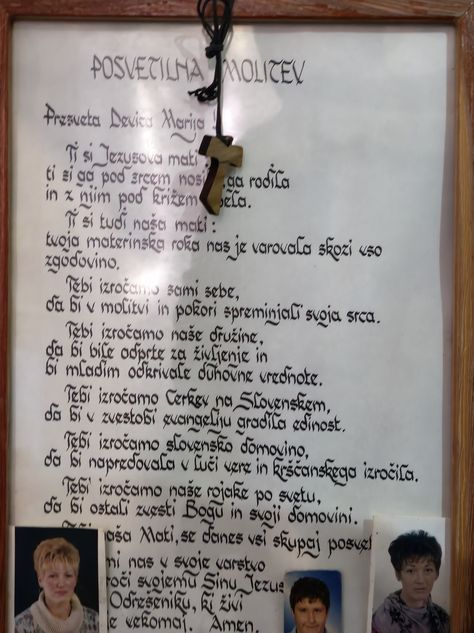 POSVETILNA MOLITEV
Presveta Devica Marija
Ti si Jezusova mati
ti si ga pod srcem ga rodila
in z njim pod križem
Ti si tudi naša mati:
tvoja materinska roka nas je varovala skozi vso
zgodovino.
Tebi izročamo sami sebe,
da bi v molitvi in pokori spreminjali svoja srca.
Tebi izročamo naše družine,
da bi bile odprte za življenje in
bi mladim odkrivale duhovne vrednote.
Tebi izročamo Cerkev na Slovenskem,
da bi v zvestobi evangeliju gradila edinost.
Tebi izročamo slovensko domovino,
da bi napredovala v luči vere in krščanskega izročila.
Tebi izročamo naše rojake po svetu,
da bi ostali zvesti Bogu in svoji domovini.
naša Mati, se danes vsi skupaj
nas v svoje varstvo
svojemu Sinu
Odrešeniku, ki živi
vekomaj. Amen.